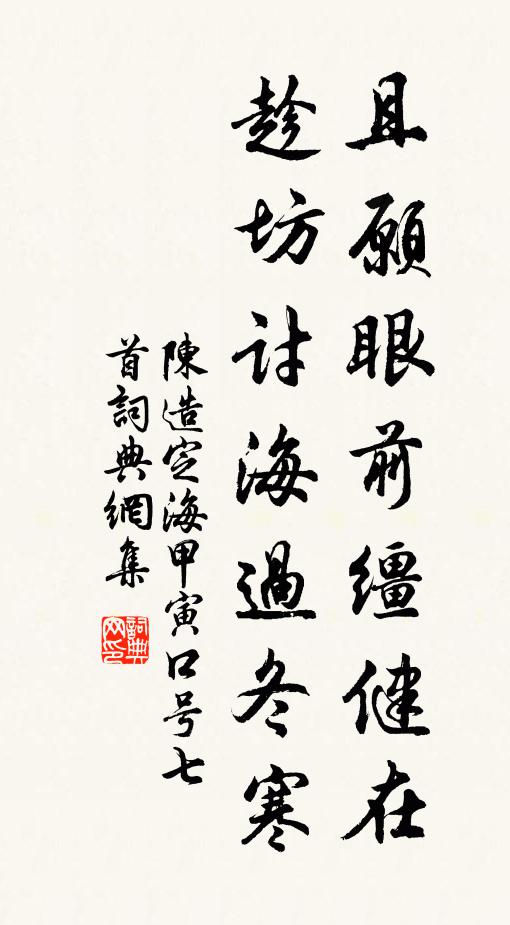 且願眼前繮健在
趁坊討海過冬寒
陳造定海甲寅口号七
首詞典網集
詞典网印